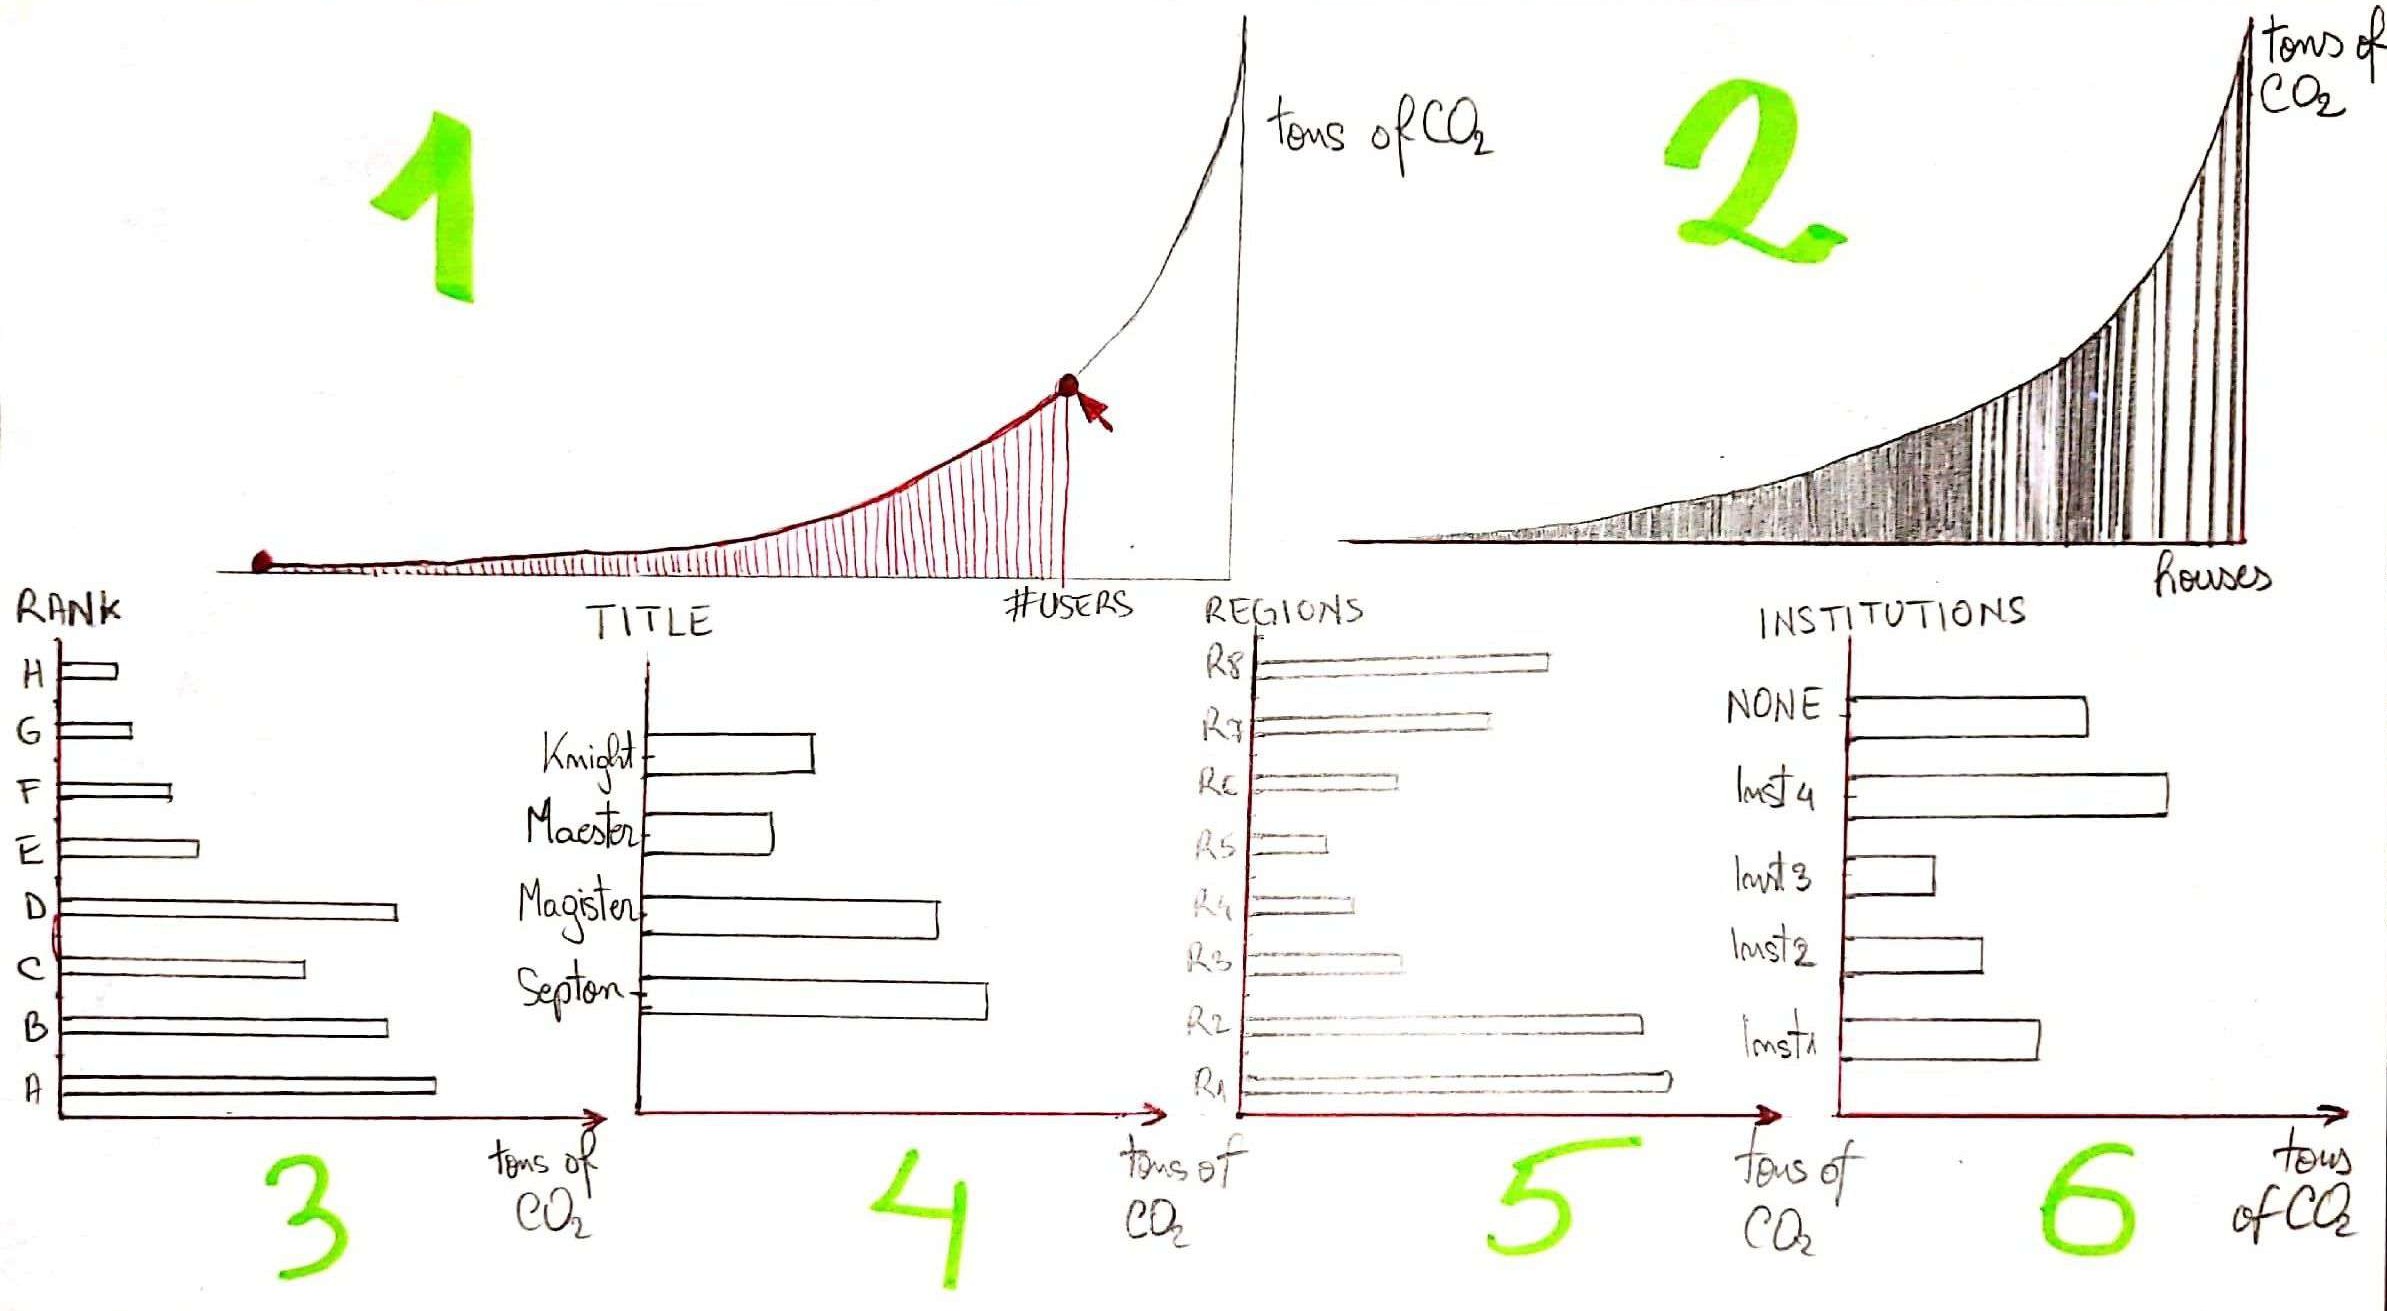 1
tons of CO₂
2
tons of
CO₂
#USERS
houses
RANK
H
G
F
E
D
C
B
A
tons of
CO₂
3
TITLE
Knight
Maester
Magister
Septon
tons of
CO₂
4
REGIONS
R8
R7
R6
R5
R4
R3
R2
R1
tons of
CO₂
5
INSTITUTIONS
NONE
Inst4
Inst3
Inst2
Inst1
tons
of CO₂
6